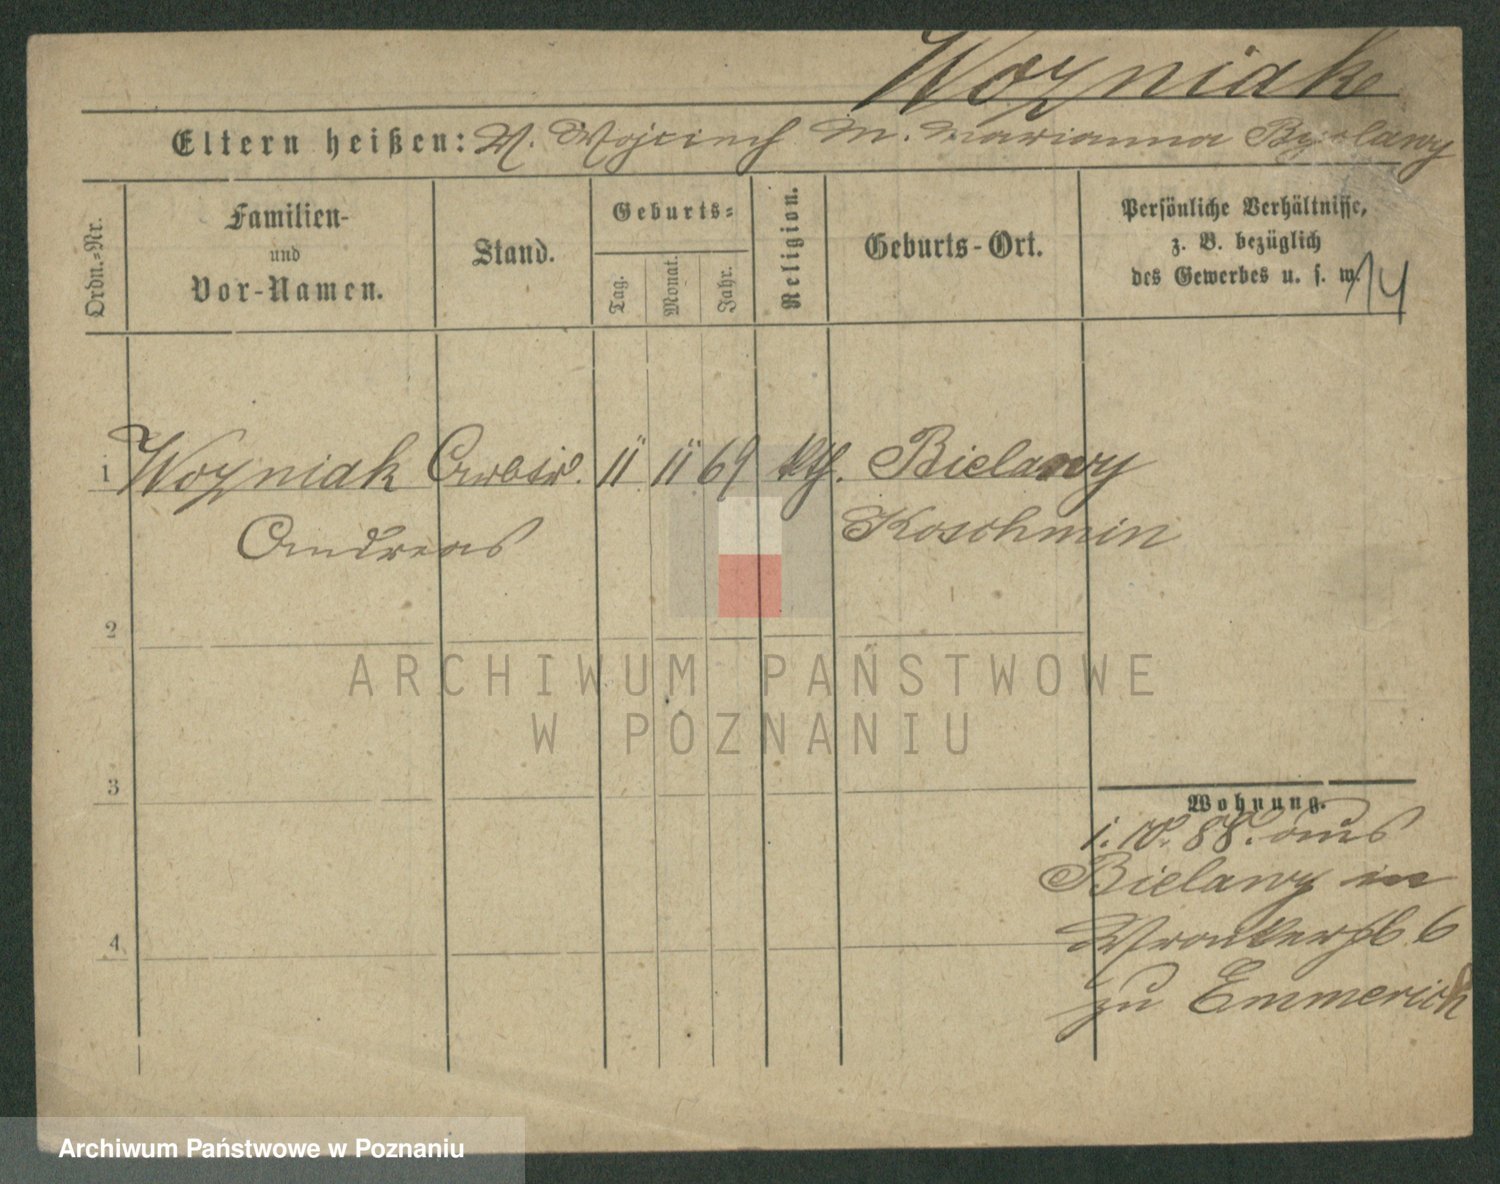 Wozniak
Eltern heißen: V. Wojciech M. Marianna Bielawy
Ordn.-Nr.
Familien-
und
Vor-Namen.
Stand.
Geburts-
Tag.
Monat.
Jahr.
Religion.
Geburts-Ort.
Persönliche Verhältnisse,
z. B. bezüglich
des Gewerbes u. s. w.
14
1 Wozniak Arbtr. 11 11 69 kth. Bielawy
Andreas Koschmin
2
3
4
Wohnung.
88. aus
Bielawy in
Wronkerstr. 6
zu Emmerich
ARCHIWUM PAŃSTWOWE
W POZNANIU
Archiwum Państwowe w Poznaniu